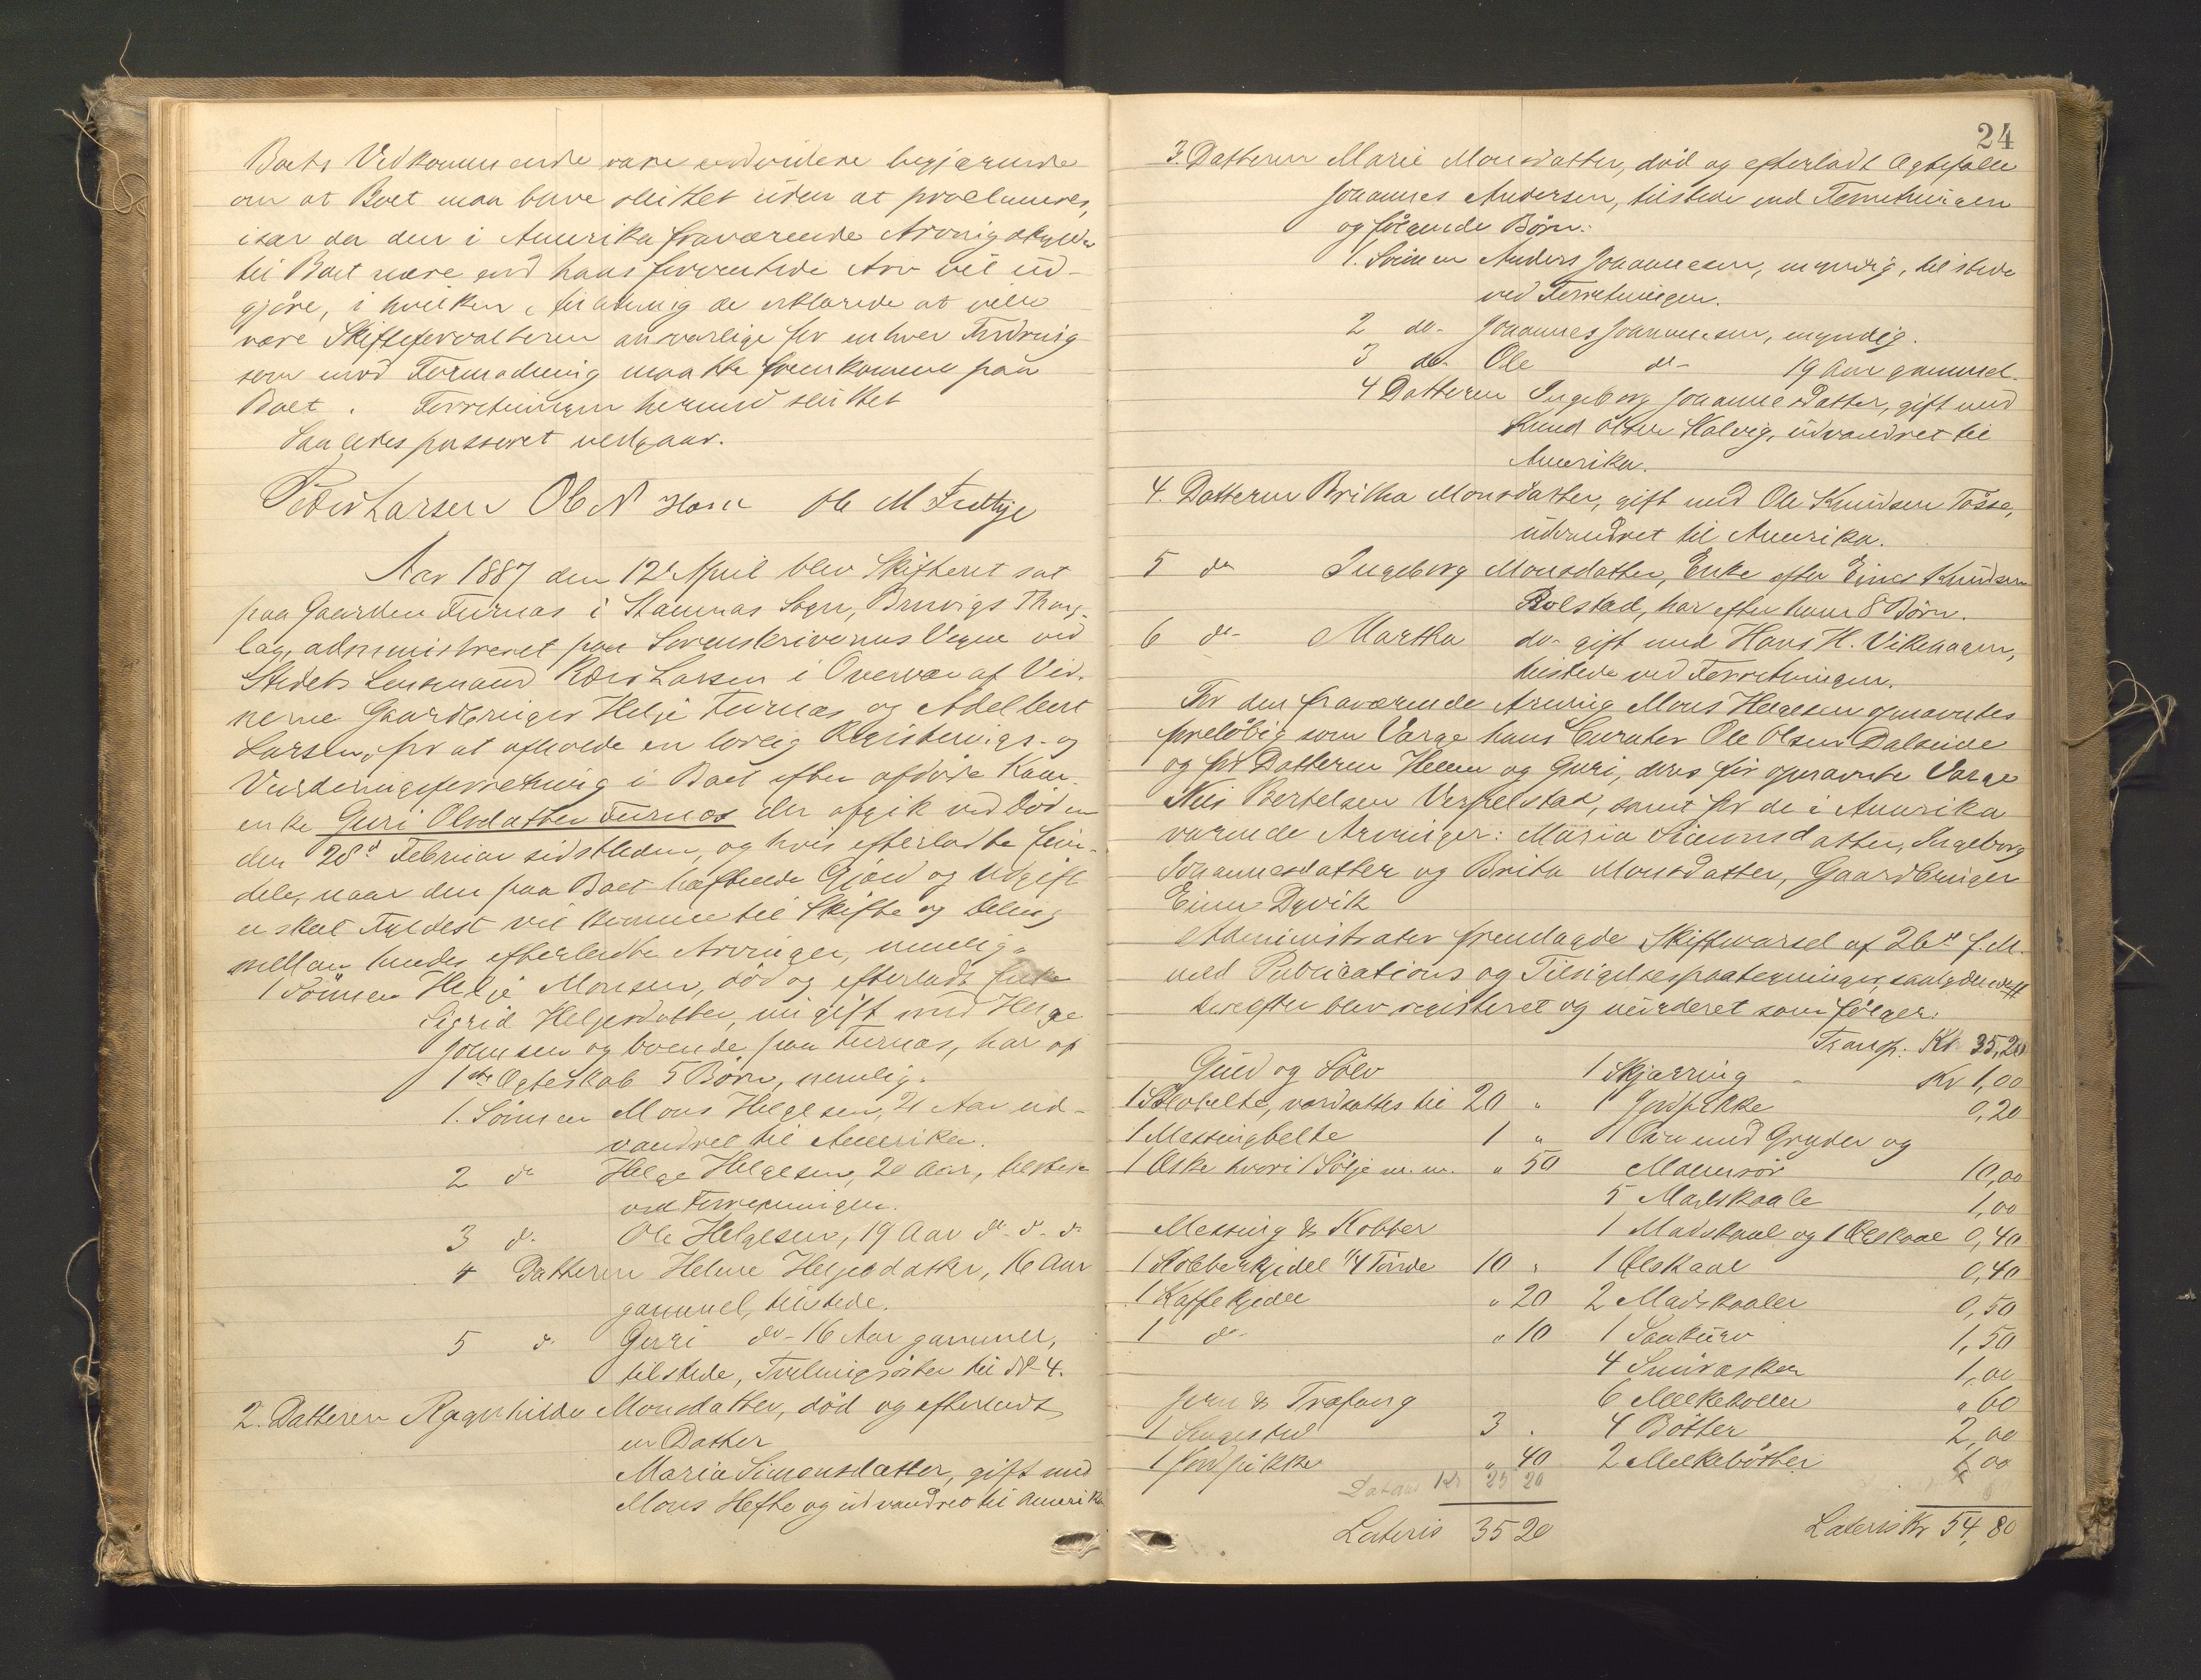 Boets Vedkommende vare endvidere begjærende
om at Boet maa blive sluttet uden at proclameres,
især da den i Amerika fraværende Arving skylder
til Boet mere end hans forventede Arv vil ud-
gjøre, i hvilken Anledning de erklærede at ville
være Skifteforvalteren ansvarlige for enhver Fordring
som mod Formodning maatte fremkomme paa
Boet. Forretningen hermed sluttet
Saaledes passeret vedgaar.
Peder Larsen Ole N Ole M
Aar 1887 den 12te April blev Skifteret sat
paa Gaarden Furnæs i Stamnæs Sogn, Bruvigs Thing-
lag, administreret paa Sorenskriverens Vegne ved
Stedets Lensmand Peder Larsen i Overvær af Vid-
nerne Gaardbruger Helje Furnæs og Adelbert
Larsen, for at afholde en lovlig Registerings- og
Vurderingsforretning i Boet efter afdøde Kaar-
enke Guri Olsdatter Furnæs der afgik ved Døden
den 28d Februar sidstleden, og hvis efterladte Eien-
dele, naar den paa Boet hæftende Gjæld og Udgift
er skeet Fyldest vil komme til Skifte og Deling
mellem hendes efterladte Arvinger, nemlig:
1 Sønnen Helje Monsen, død og efterladt Enke
Sigrid Helgesdatter, nu gift med Helge
Johnsen og boende paa Furnæs, har af
1ste Ægteskab 5 Børn, nemlig:
1. Sønnen Mons Helgesen, 21 Aar ud-
vandret til Amerika.
2 do Helge Helgesen, 20 Aar, tilstede
ved Forretningen.
3 do Ole Helgesen, 19 Aar do do do
4 Datteren Helene Helgesdatter, 16 Aar
gammel, tilstede.
5 do Guri do 16 Aar gammel,
tilstede, Tvillingsøster til No 4.
2. Datteren Ragnhilda Monsdatter, død og efterladt
en Datter
Maria Simonsdatter, gift med
Mons Hefte og udvandret til Amerika
24
3. Datteren Marie Monsdatter, død og efterladt Ægtefælle
Johannes Andersen, tilstede ved Forretningen
og følgende Børn:
1. Sønnen Anders Johannesen, myndig, tilstede
ved Forretningen.
2 do Johannes Johannesen, myndig.
3 do Ole do 19 Aar gammel.
4 Datteren Ingeborg Johannesdatter, gift med
Knud Olsen Kalvig, udvandret til
Amerika.
4. Datteren Britha Monsdatter, gift med Ole Knudsen Tøsse,
udvandret til Amerika.
5 do Ingeborg Monsdatter, Enke efter Einar Knudsen
Rolstad, har efter ham 8 Børn.
6 do Martha do gift med Hans H. Vikenaaen,
tilstede ved Forretningen.
For den fraværende Arving Mons Helgesen opnævntes
foreløbig som Værge hans Curator Ole Olsen Dalseide
og for Datteren Helene og Guri, deres før opnævnte Værge
Nils Bertelsen Verpelstad, samt for de i Amerika
værende Arvinger: Maria Simonsdatter, Ingeborg
Johannesdatter og Brita Monsdatter, Gaardbruger
Einar Dyvik
Administrator fremlagde Skiftevarsel af 26de f.M.
med Publications og Tilsigelsespaategninger, saalydende #
hvorefter blev registreret og vurderet som følger:
Transp. Kr. 35,20
Guld og Sølv
1 Skjærring Kr 1,00
1 Sølvbelte, værdsattes til 20 "
1 Jordhakke 0,20
1 Messingbelte 1 "
1 Ovn med Gryder og
1 Æske hvori 1 Sølje m.m. " 50
10,00
5 Madskaale 1,00
Messing & Kobber
1 Madskaal og 1 Ølskaal 0,40
1 Kobberkjedel 1/4 Tønde 10 "
1 Ølskaal 0,40
1 Kaffekjedel " 20
2 Madskaaler 0,50
1 do " 10
1 Saakurv 1,50
4 Smøræsker 1,00
Jern & Træfang
6 Melkekoller " 60
1 3 "
4 Bøtter 2,00
1 Jordhakke " 40
2 Melkebøtter 1,00
Lateris 35 20
Lateris Kr 54,80